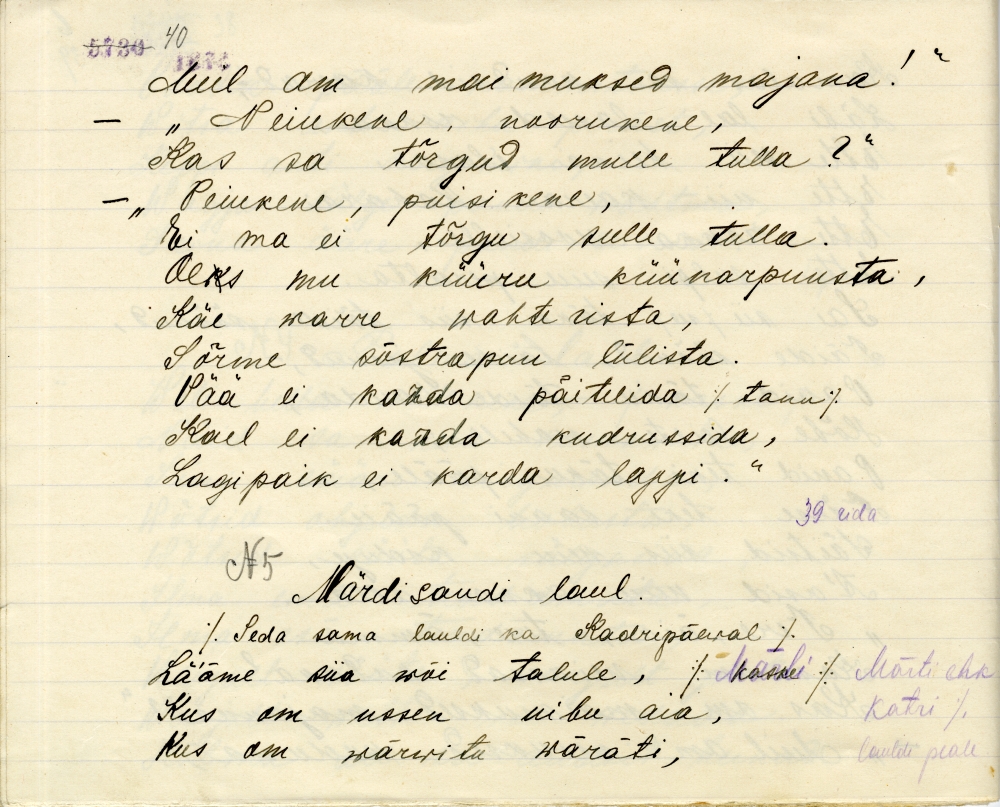 40
5730
Meil om maimuksed majana!"
— „Neiukene, noorukene,
Kas sa tõrgud mulle tulla?"
— „Peiukene, poisikene,
Ei ma ei tõrgu sulle tulla.
Oleks mu küüru küünarpuusta,
Käe warre wahterista,
Sõrme sõstrapuu lülista.
Pää ei kanda päitelida ⁒ tanu ⁒
Kael ei kanda kudrussida,
Lagipaik ei karda lappi."
39 rida
N 5
Märdisandi laul.
⁒ Seda sama lauldi ka Kadripäewal ⁒
Lääme siia wõi talule, ⁒ kaske ⁒ Märti ehk
Kus om ussen uibu aia, Katri ⁒
Kus om wärwitu wäräti, lauldi peale